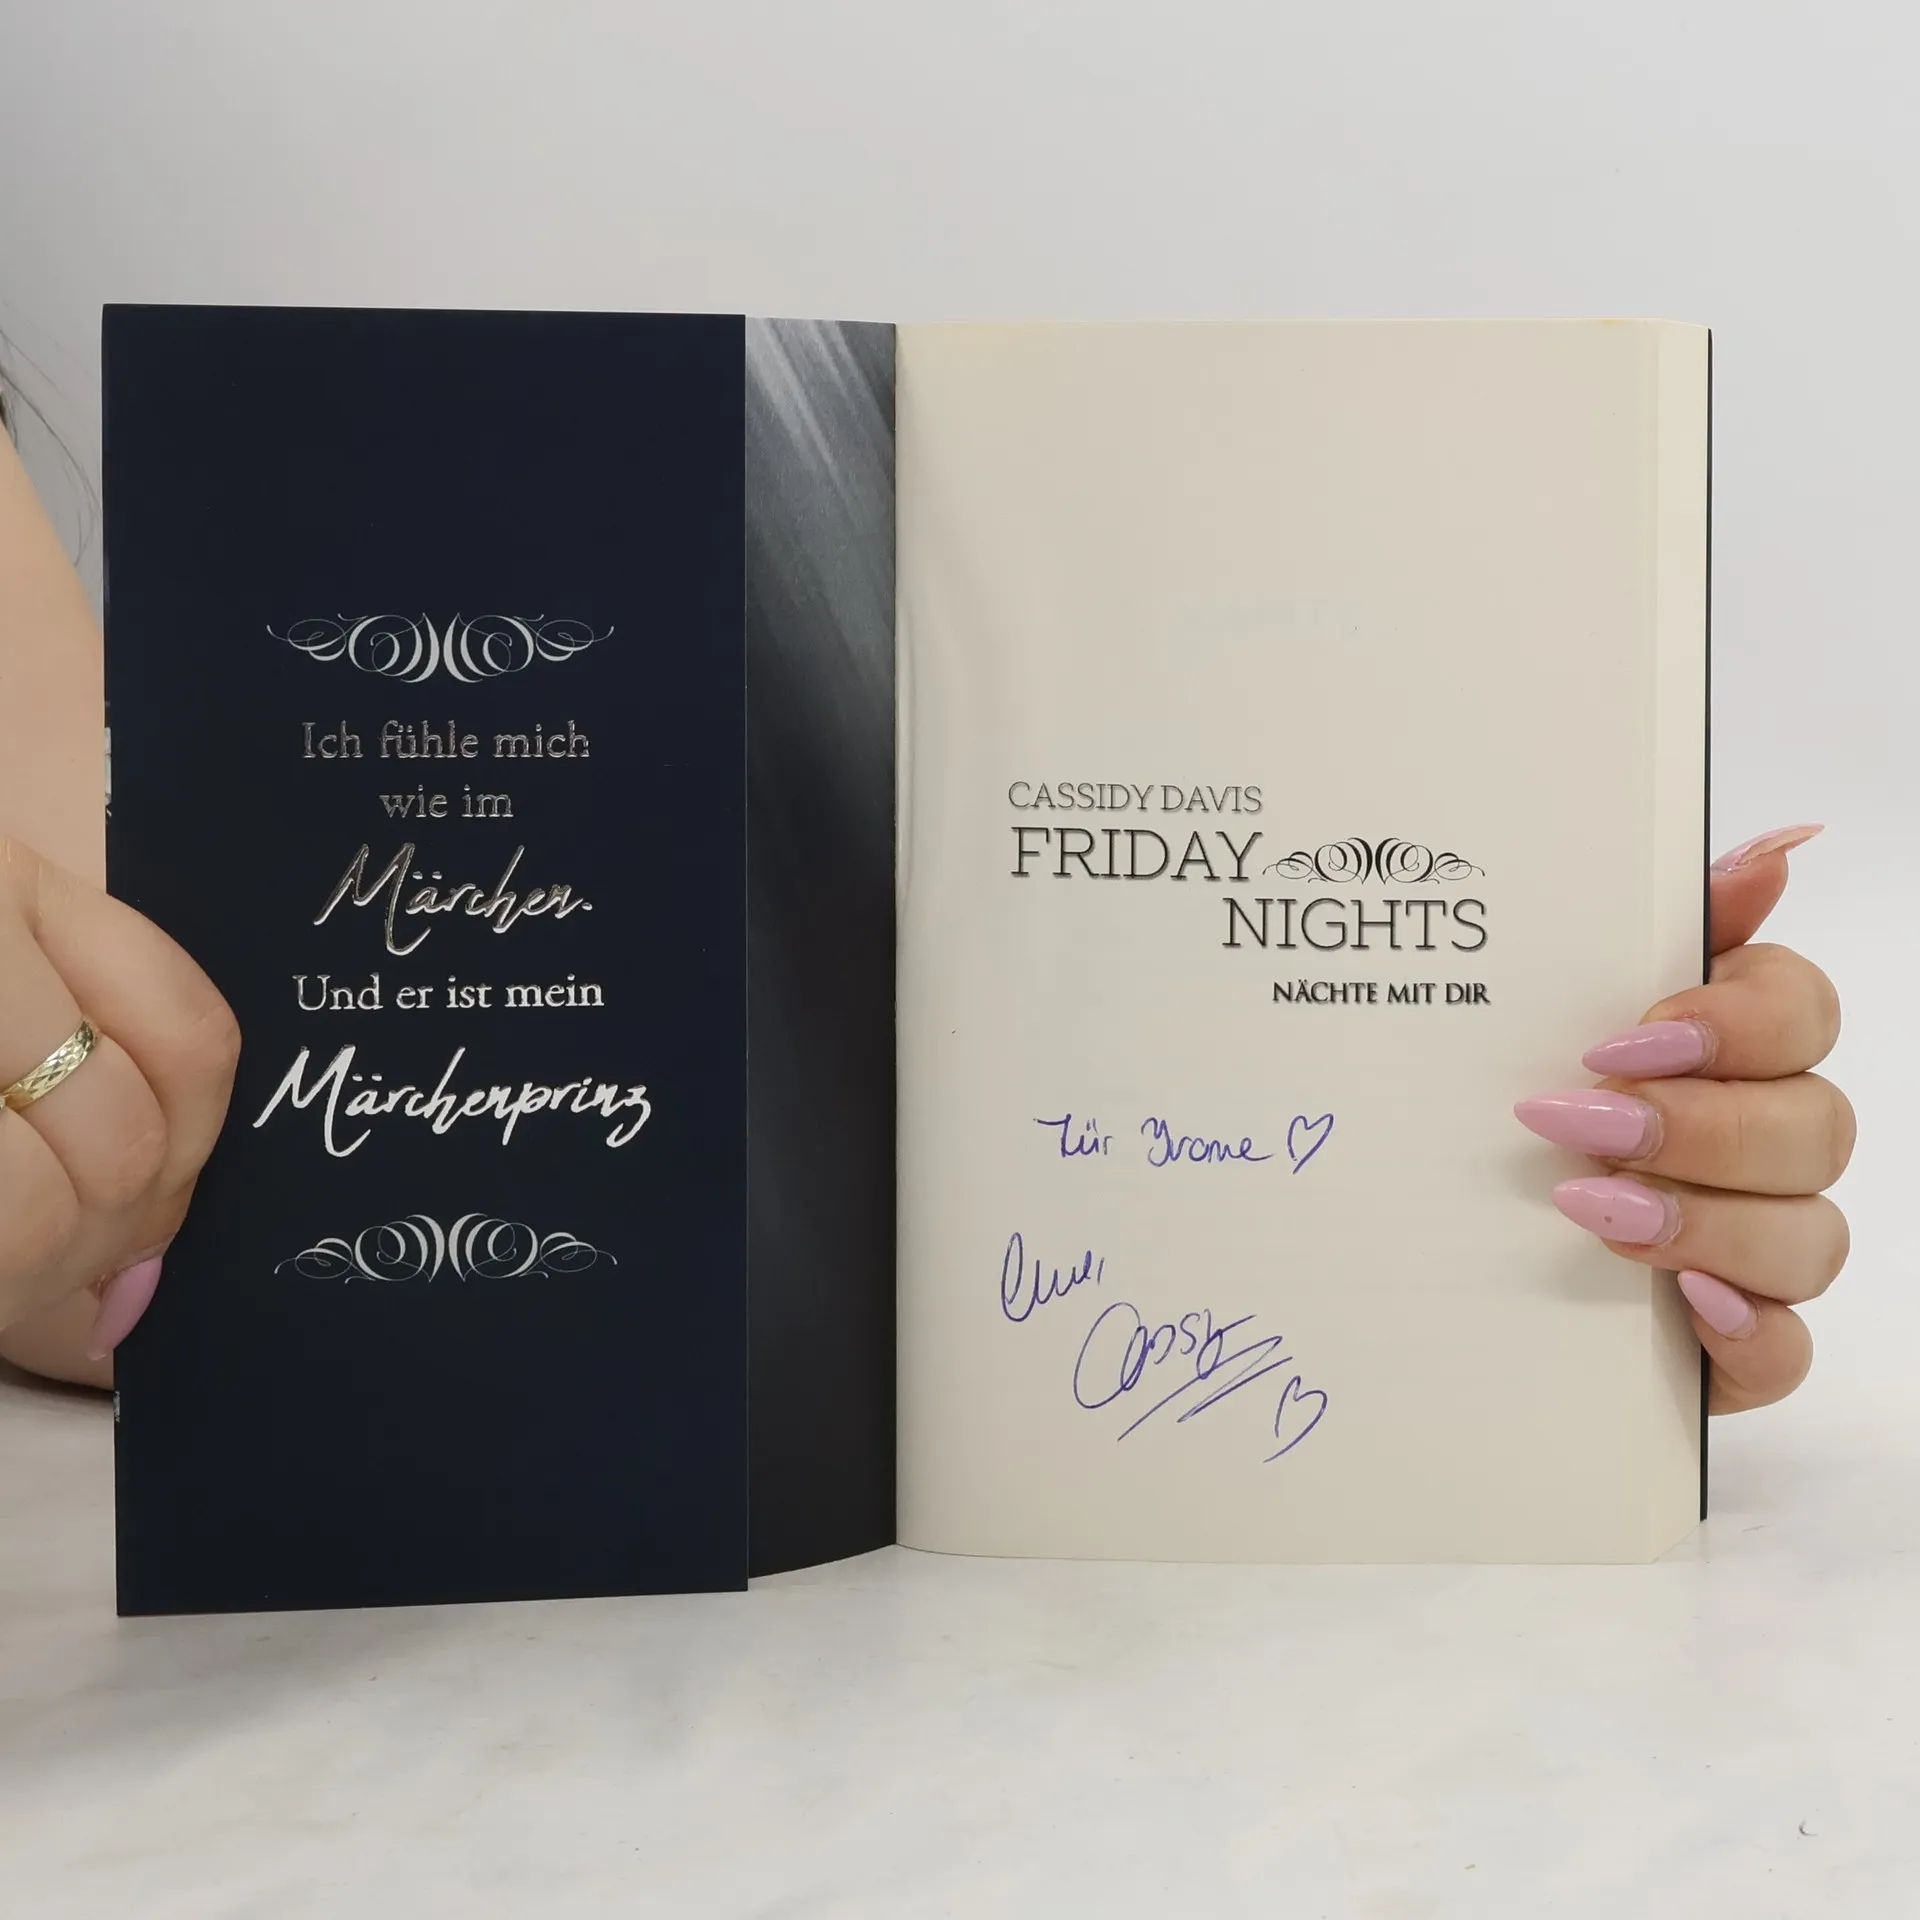 Ich fühle mich
wie im
Märchen.
Und er ist mein
Märchenprinz
CASSIDY DAVIS
FRIDAY
NIGHTS
NÄCHTE MIT DIR
Für Yvonne ♡